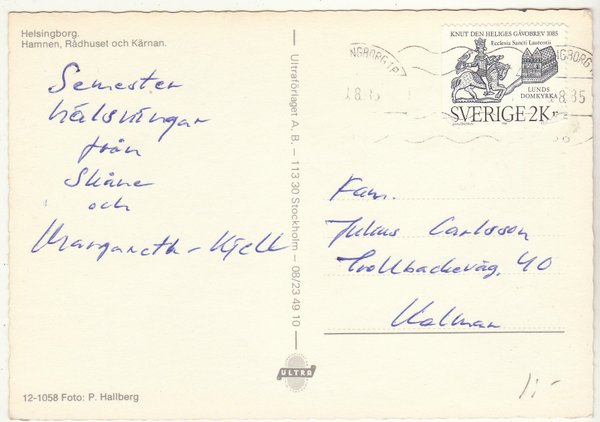 Helsingborg.
Hamnen, Rådhuset och Kärnan.
Semester
hälsningar
från
Skåne
och
Margareth - Kjell
Ultraförlaget A. B. — 113 30 Stockholm — 08/23 49 10
ULTRA
12-1058 Foto: P. Hallberg
KNUT DEN HELIGES GÅVOBREV 1085
Ecclesia Sancti Laurentii
LUNDS
DOMKYRKA
SVERIGE 2Kr
NGBORG 1
8.85
Fam.
Julius Carlsson
Trollbackeväg. 40
Kalmar
1:-